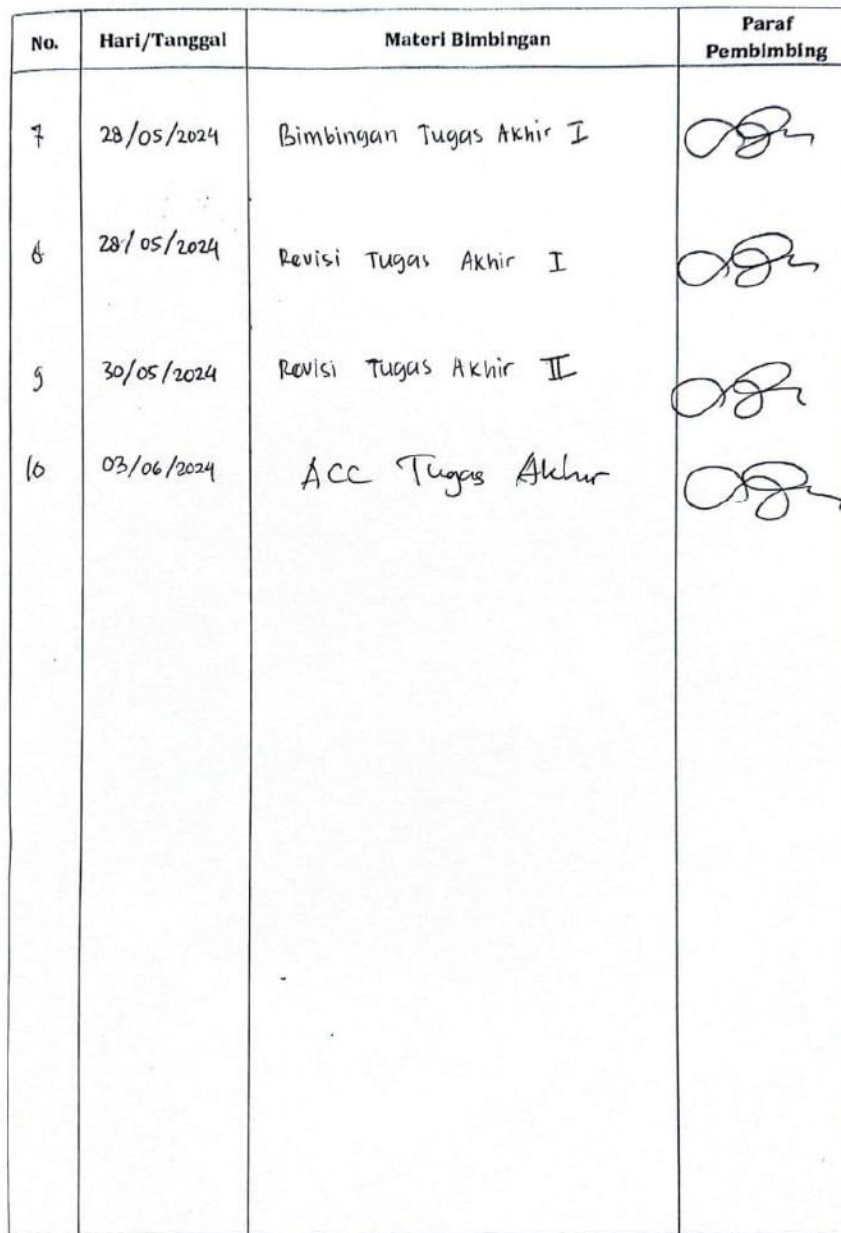 No. Hari/Tanggal Materi Bimbingan Paraf Pembimbing
7 28/05/2024 Bimbingan Tugas Akhir I
8 28/05/2024 Revisi Tugas Akhir I
9 30/05/2024 Revisi Tugas Akhir II
10 03/06/2024 ACC Tugas Akhir